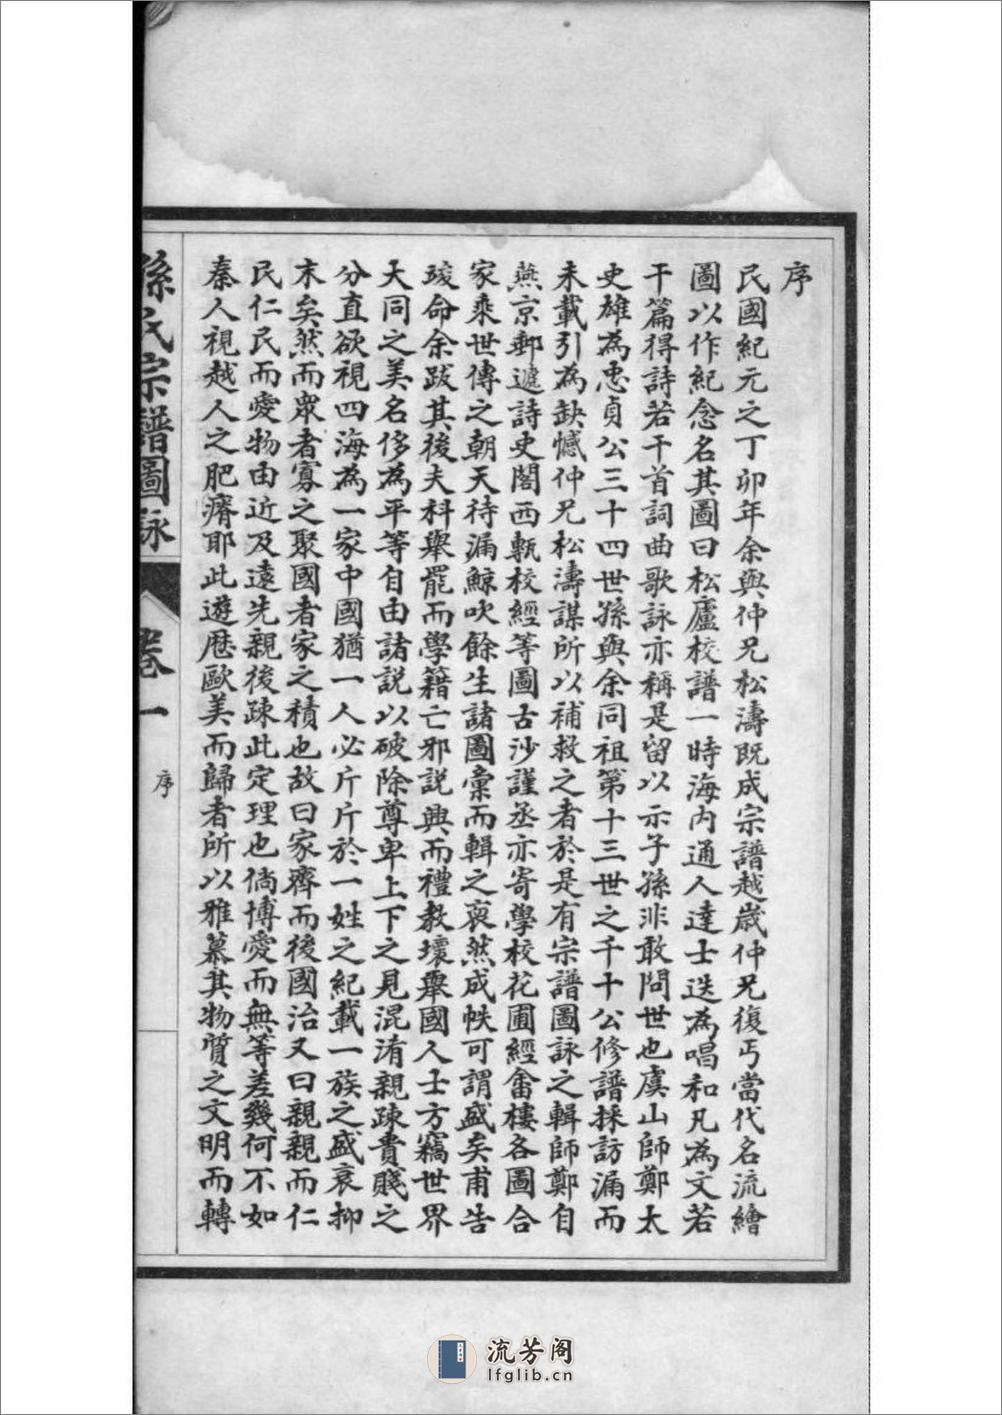 序
民國紀元之丁卯年余與仲兄松濤既成宗譜越歲仲兄復丐當代名流繪
圖以作紀念名其圖曰松廬校譜一時海内通人達士迭為唱和凡為文若
干篇得詩若干首詞曲歌詠亦稱是留以示子孫非敢問世也虞山師鄭太
史雄為忠貞公三十四世孫與余同祖第十三世之千十公修譜採訪漏而
未載引為缺憾仲兄松濤謀所以補救之者於是有宗譜圖詠之輯師鄭自
燕京郵遞詩史閣西甎校經等圖古沙謹丞亦寄學校花圃經畬樓各圖合
家乘世傳之朝天待漏鯨吹餘生諸圖彙而輯之裒然成帙可謂盛矣甫告
竣命余跋其後夫科舉罷而學籍亡邪説興而禮教壞舉國人士方竊世界
大同之美名侈為平等自由諸説以破除尊卑上下之見混淆親疎貴賤之
分直欲視四海為一家中國猶一人必斤斤於一姓之紀載一族之盛衰抑
末矣然而眾者寡之聚國者家之積也故曰家齊而後國治又曰親親而仁
民仁民而愛物由近及遠先親後疎此定理也倘博愛而無等差幾何不如
秦人視越人之肥瘠耶此遊歴歐美而歸者所以雅慕其物質之文明而轉
孫氏宗譜圖詠
卷一
序
流芳阁
lfglib.cn